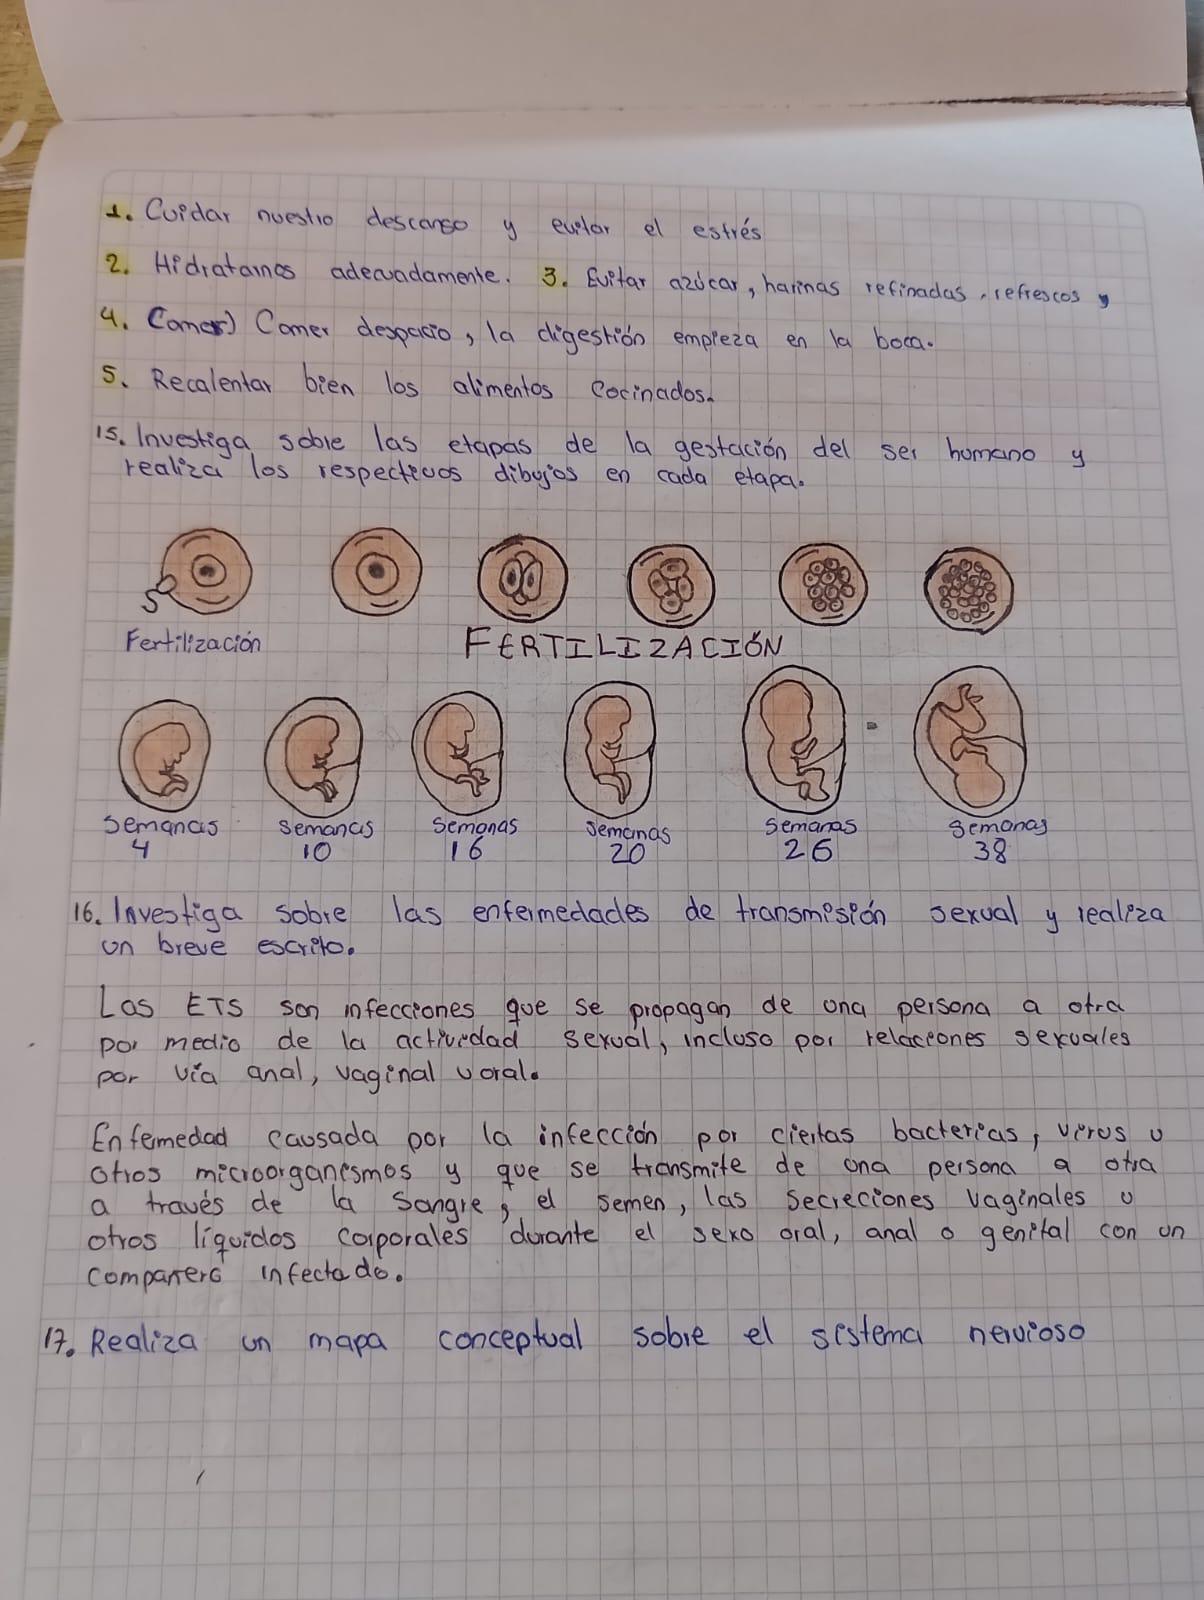 1. Cuidar nuestro descanso y evitar el estrés
2. Hidratarnos adecuadamente. 3. Evitar azúcar, harinas refinadas, refrescos y
4. (Comer) Comer despacio, la digestión empieza en la boca.
5. Recalentar bien los alimentos cocinados.
15. Investiga sobre las etapas de la gestación del ser humano y
realiza los respectivos dibujos en cada etapa.
Fertilización
FERTILIZACIÓN
Semanas 4
Semanas 10
Semanas 16
Semanas 20
Semanas 26
Semanas 38
16. Investiga sobre las enfermedades de transmisión sexual y realiza
un breve escrito.
Las ETS son infecciones que se propagan de una persona a otra
por medio de la actividad sexual, incluso por relaciones sexuales
por vía anal, vaginal u oral.
Enfermedad causada por la infección por ciertas bacterias, virus u
otros microorganismos y que se transmite de una persona a otra
a través de la sangre, el semen, las secreciones vaginales u
otros líquidos corporales durante el sexo oral, anal o genital con un
compañero infectado.
17. Realiza un mapa conceptual sobre el sistema nervioso